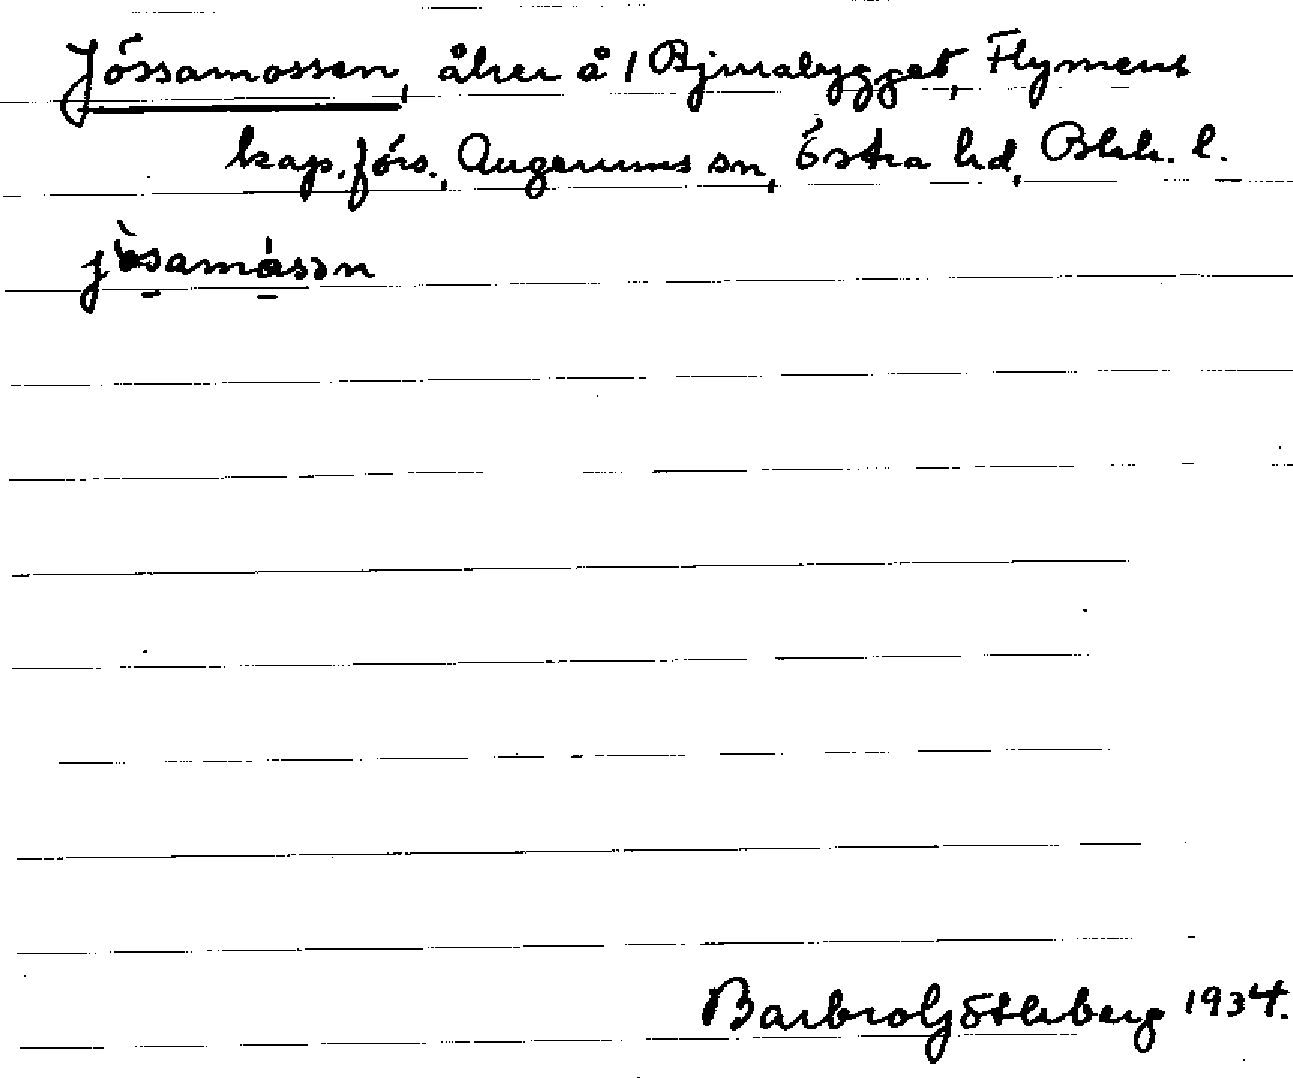 Jössamossen, åker å 1 Bjurabygget, Flymens
kap.förs., Augerums sn, Östra hd, Blek. l.
jòsamásən
Barbro Götleberg 1934.